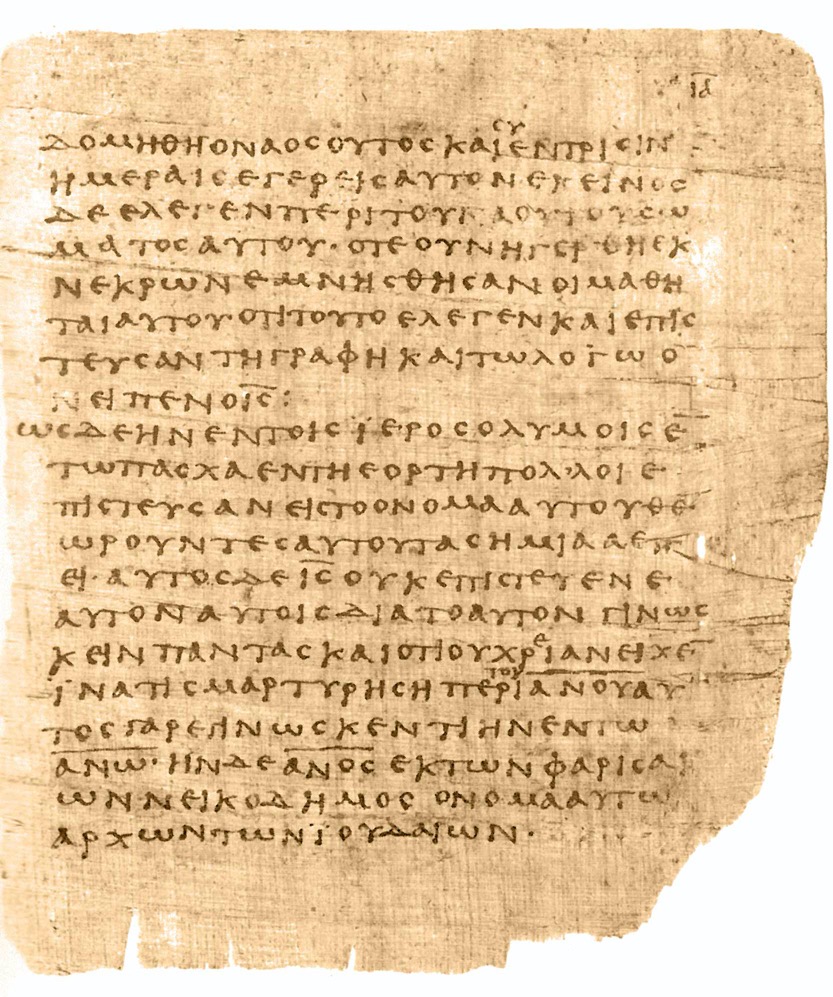 ιδ
δομηθηοναοςουτοςκαι ϲυ εντριϲιν
ημεραιϲεγερειϲαυτονεκεινοϲ
δεελεγενπεριτουναουτουϲω
ματοϲαυτου· οτεουνηγερθηεκ
νεκρωνεμνηϲθηϲανοιμαθη
ταιαυτουοτιτουτοελεγενκαιεπιϲ
τευϲαντηγραφηκαιτωλογωο
νειπενοι̅ϲ̅:
ωϲδεηνεντοιϲϊεροϲολυμοιϲε̅
τωπαϲχαεντηεορτηπολ᾽λοιε
πιϲτευϲανειϲτοονομααυτουθε
ωρουντεϲαυτουταϲημιααεπ
ει· αυτοϲδει̅ϲ̅ουκεπιϲτευενε
αυτοναυτοιϲδιατοαυτονγινωϲ
κεινπανταϲκαιοτιουχρ`ε´ιανειχε̅
ϊνατιϲμαρτυρηϲηπερι`του´α̅ν̅ο̅υ̅αυ
τοϲγαρεγινωϲκεντιηνεντω
α̅ν̅ω̅· ηνδεα̅ν̅ο̅ϲ̅εκτωνφαριϲαι
ωννεικοδημοϲονομααυτω
αρχωντωνϊουδαιων·